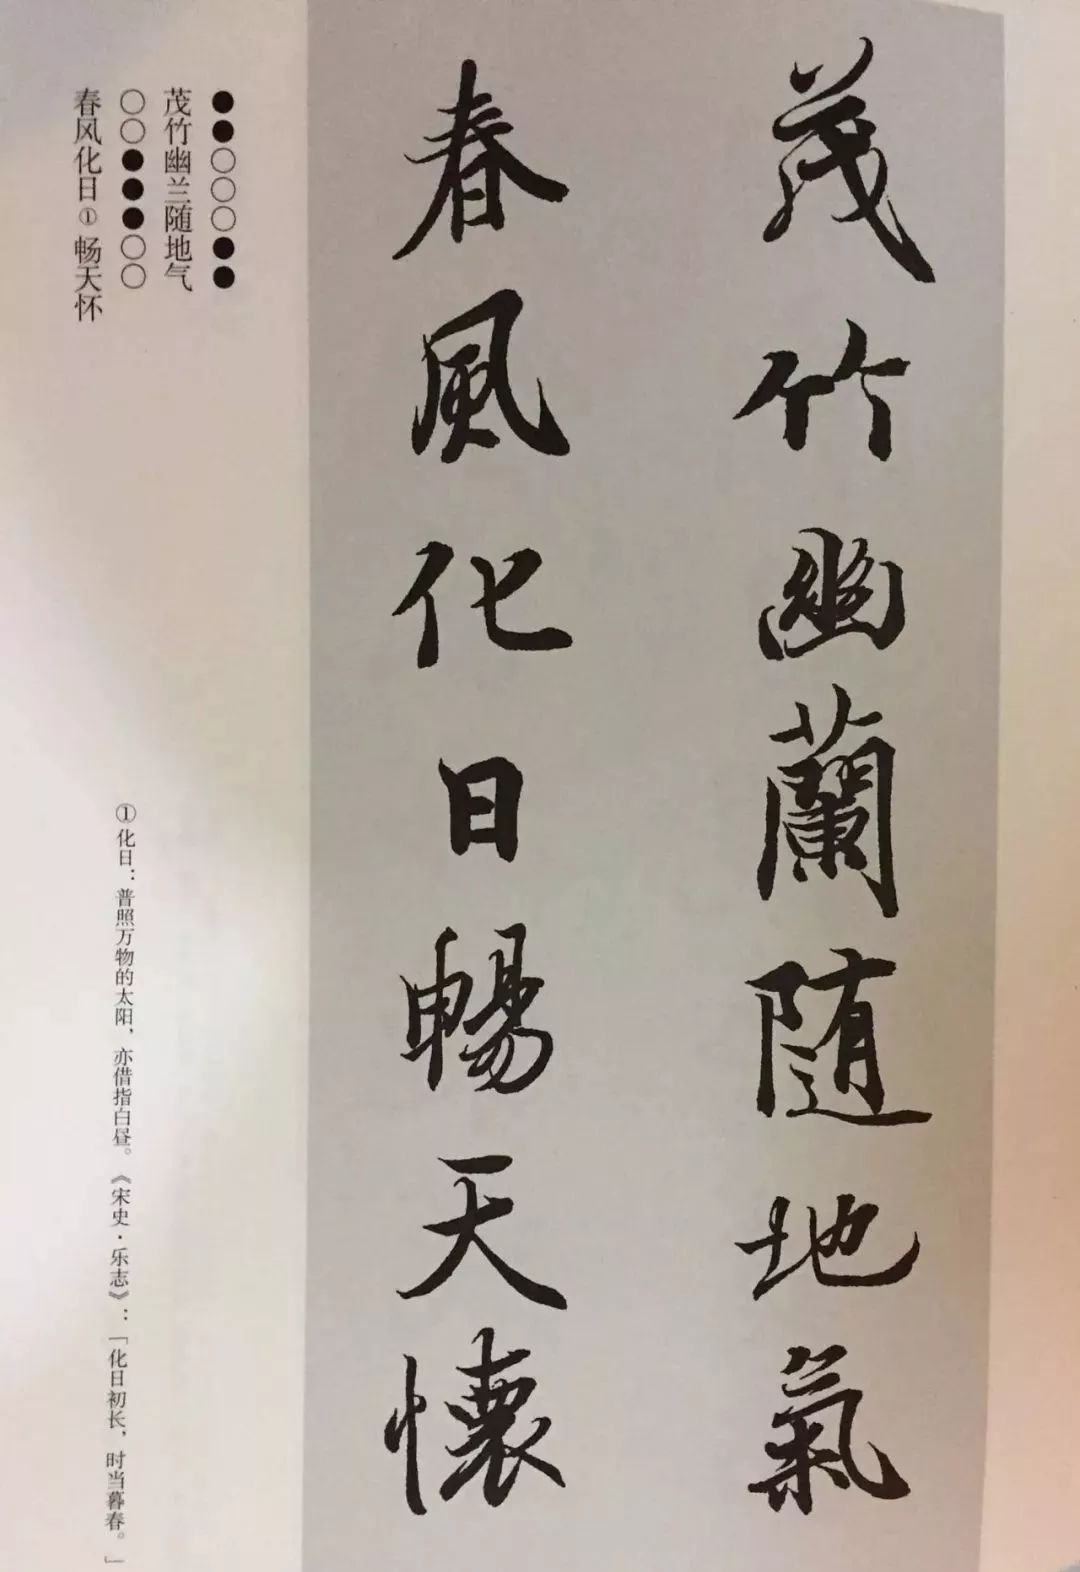 茂竹幽蘭隨地氣
春風化日暢天懷
●●○○○●●
茂竹幽兰随地气
○○●●●○○
春风化日①畅天怀
①化日：普照万物的太阳，亦借指白昼。《宋史·乐志》：「化日初长，时当暮春。」